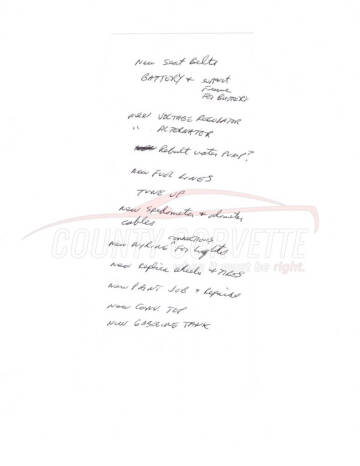 New Seat Belts
BATTERY & support
Frame
FOR BATTERY
NEW VOLTAGE REGULATOR
" ALTERNATER
Rebuilt water PUMP?
NEW FUEL LINES
TUNE UP
New Spedometer &
cables
COUNTY CORVETTE
it must be right.
CONNECTIONS
New WIRING FOR Lights
New Replica wheels & TIRES
New PAINT JOB & Repairs
NEW CONV. TOP
NEW GASOLINE TANK